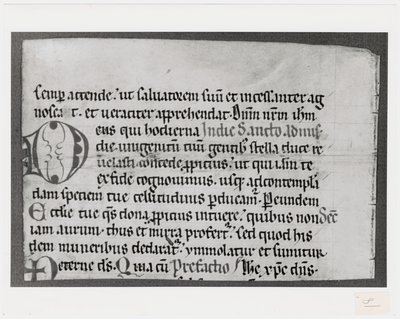 semp attende. ut salvatorem suū et incessanter ag
noscat. et veraciter apprehendat. Dñm nrm ihm
Deus qui hodierna Indie Sancto
die unigenitum tuū gentib; stella duce re
velasti. concede ppicius. ut qui iam te
ex fide cognovimus. usq; ad contempla
dam speciem tue celsitudinis pducam. P eundem
Ecclie tue qs dona ppicius intuere. quibus non Secr
iam aurum. thus et mirra profert. sed quod his
dem muneribus declarat. ymmolatur et sumitur
eterne ds. Quia cū Prefactio